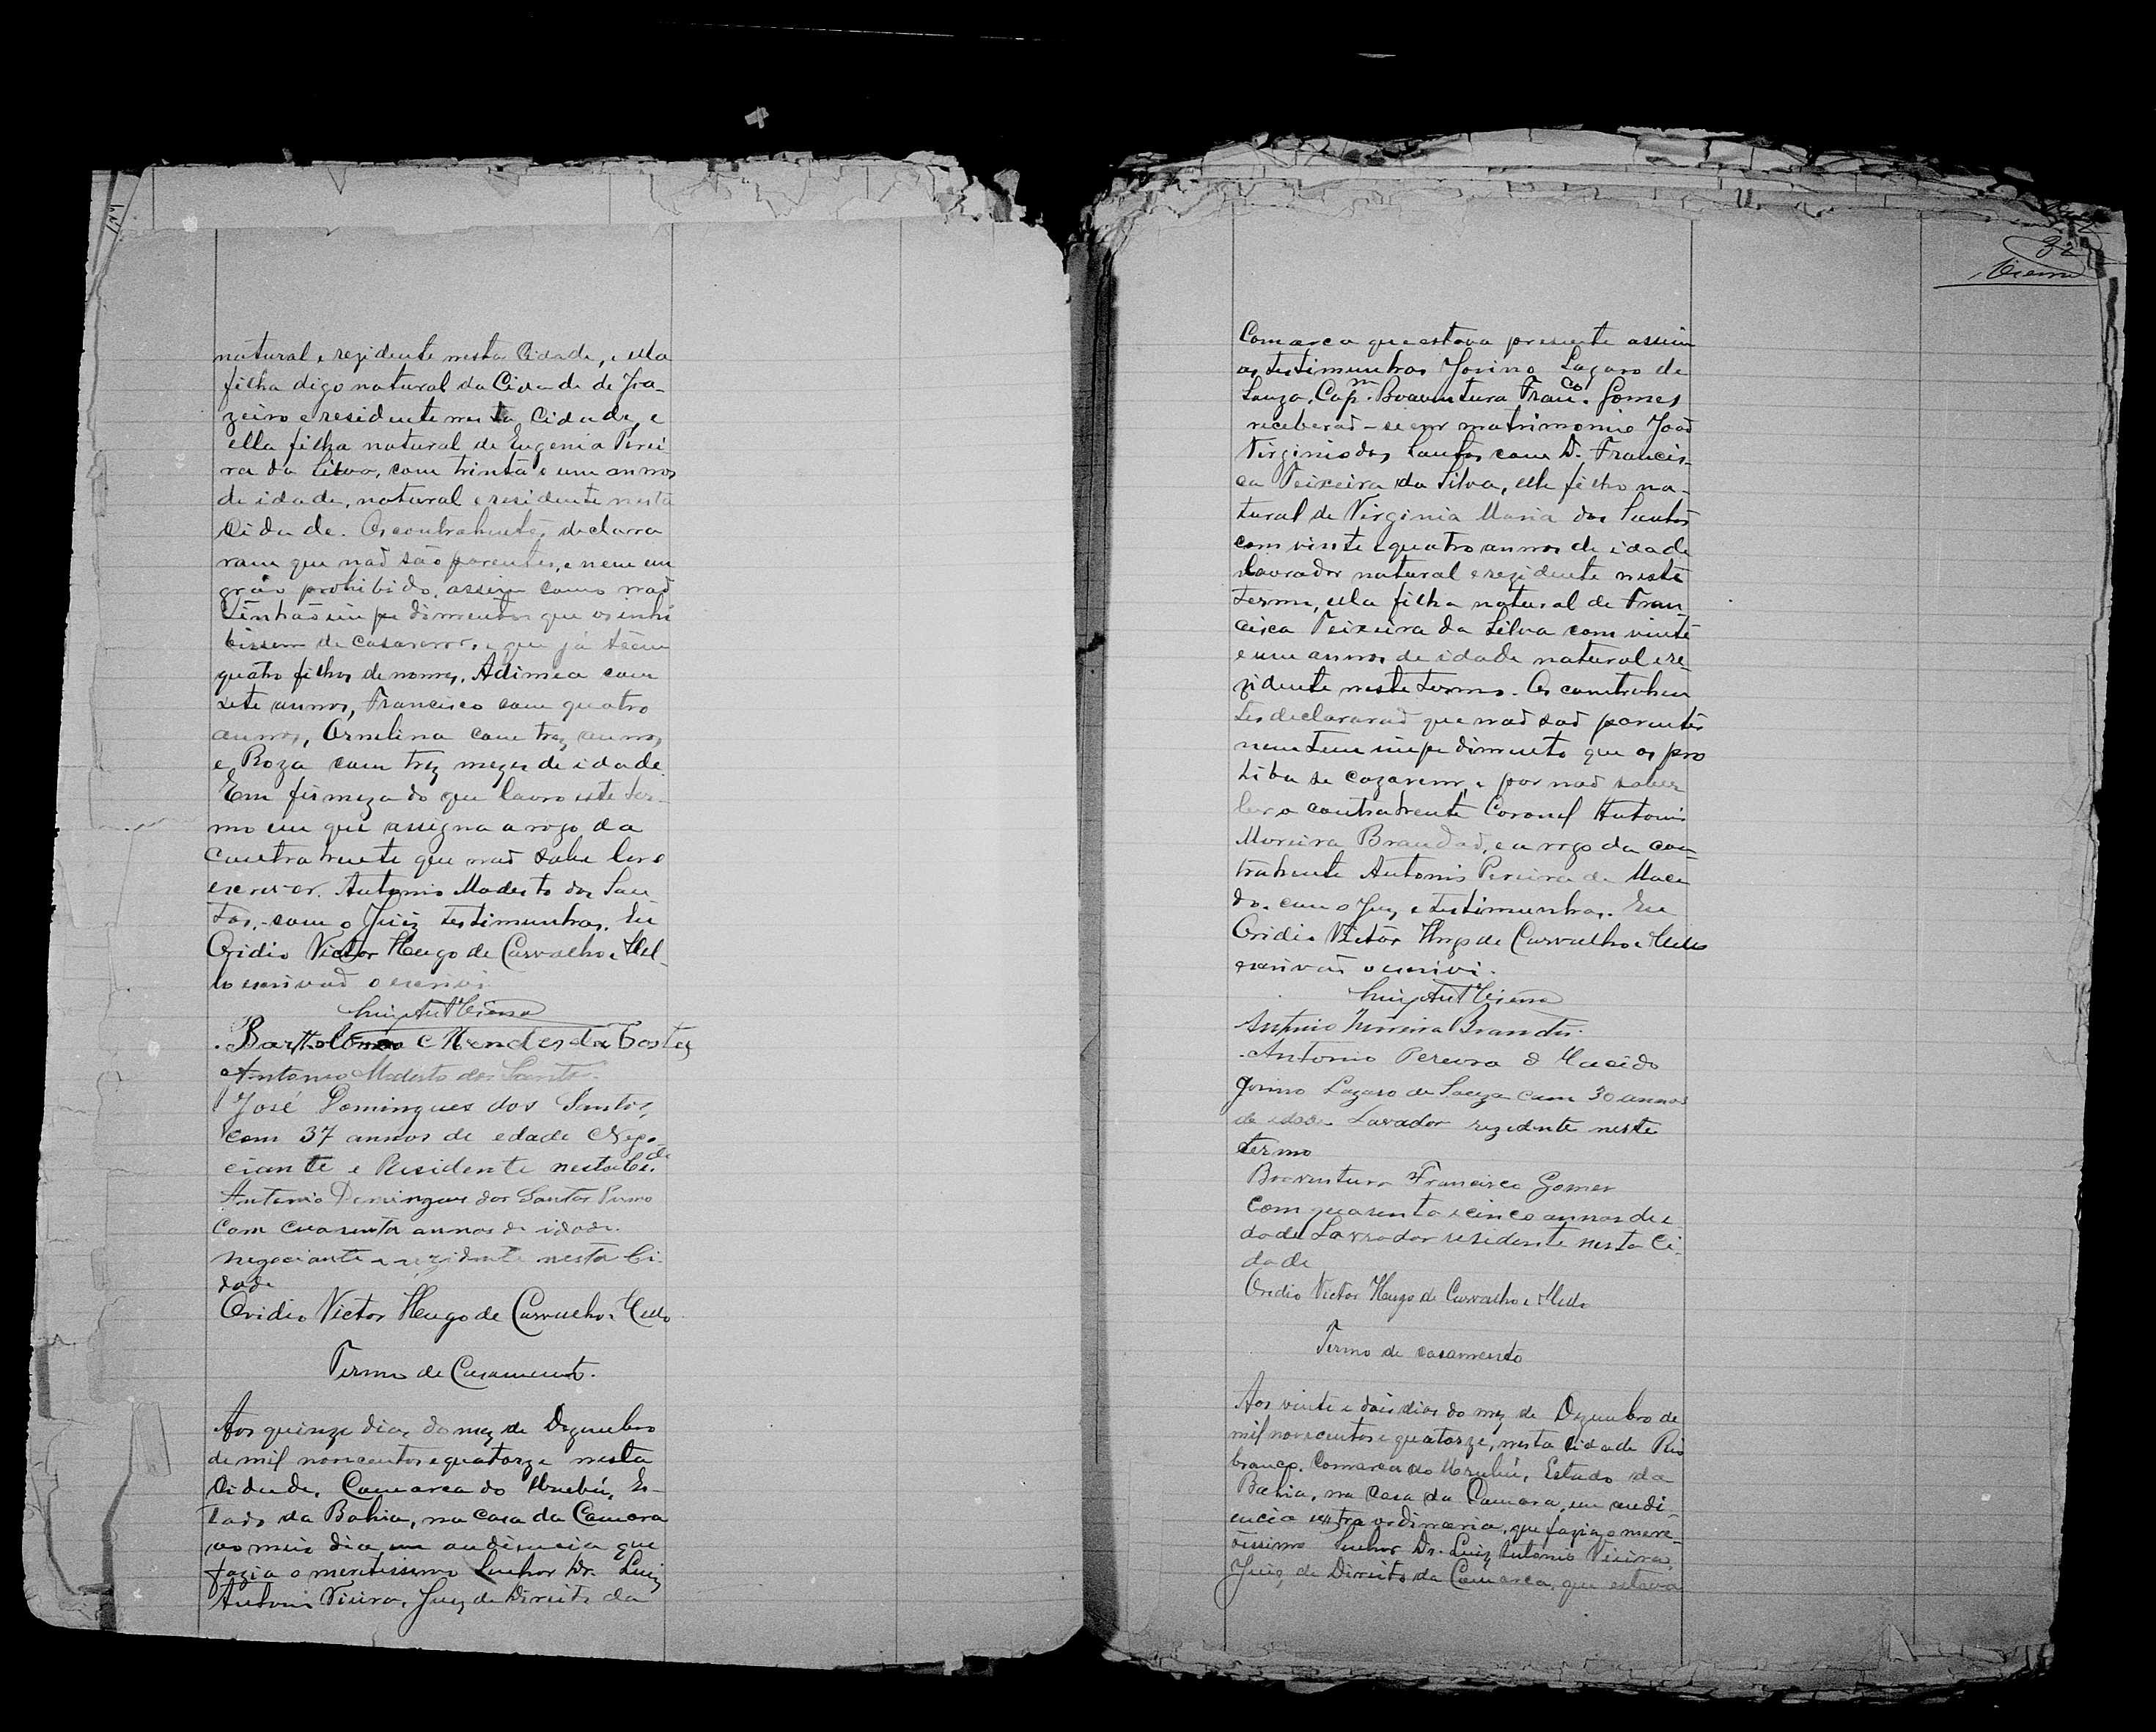 natural e rezidente nesta Cidade, e ella
filha digo natural da Cidade de Joa-
zeiro e residente nesta Cidade, e
ella filha natural de Eugenia Perei
ra da Silva, com trinta e um annos
de idade, natural e residente nesta
Cidade. Os contrahentes, declara
ram que naõ são parentes, e nem em
gráo prohibido, assim como naõ
tinhaõ impedimentos que os inhi
bissem de casarem, e que já têem
quatro filhos de nomes, Adimea com
sete annos, Francisco com quatro
annos, Ornelina com trez annos
e Roza com trez mezes de idade.
Em firmeza do que lavro este ter-
mo em que assigna a rogo da
contrahente que naõ sabe ler e
escrever. Antonio Modesto dos San-
tos, com o Juiz testimunhas. Eu
Ovidio Victor Hugo de Carvalho e Mel-
lo escrivaõ o escrivi.
Luiz Ant Vieira
Bartholomeo Mendes da Costa
Antonio Modesto dos Santos
José Domingues dos Santos,
com 37 annos de edade Nego-
ciante e Residente nesta Cide.
Antonio Domingues dos Santos Primo
com cuarenta annos de idade.
negociante e rezidente nesta Ci-
dade
Ovidio Victor Hugo de Carvalho e Mello
Termo de Casamento.
Aos quinze dias do mez de Dezembro
de mil novecentos e quatorze nesta
Cidade, Comarca do Urubú, Es-
tado da Bahia, na casa da Camara
ao meio dia em audiencia que
fazia o meritissimo Senhor Dr. Luiz
Antonio Vieira, Juiz de Direito da
32
Vieira
Comarca que estava presente assim
as testimunhas Jovino Lazaro de
Souza, Capm. Boaventura Franco. Gomes
receberaõ-se em matrimonio Joaõ
Virginio dos Santos com D. Francis-
ca Teixeira da Silva, elle filho na-
tural de Virginia Maria dos Santos
com vinte e quatro annos de idade
lavrador natural e rezidente neste
termo, ella filha natural de Fran-
cisca Teixeira da Silva com vinte
e um annos de idade natural e re-
zidente neste termo. Os contrahen
tes declararaõ que naõ saõ parentes
nem tem impedimento que os pro
hiba se cazarem, e por naõ saber
ler o contrahente Coronel Antonio
Moreira Brandaõ, e a rogo da con-
trahente Antonio Pereira de Mace
do, com o Juiz e testimunhas. Eu
Ovidio Victor Hugo de Carvalho e Mello
escrivaõ o escrivi.
Luiz Ant Vieira
Antonio Moreira Brandão.
Antonio Pereira d Macêdo
Jovino Lazaro de Souza com 30 annos
de idade Lavador rezedente neste
termo
Boaventura Francisco Gomes
com quarenta e cinco annos de i
dade Lavrador residente nesta Ci-
dade
Ovidio Victor Hugo de Carvalho e Mello
Termo de casamento
Aos vinte e dois dias do mez de Dezembro de
mil novecentos e quatorze, nesta Cidade Rio
branco. Comarca do Urubú, Estado da
Bahia, na Casa da Camara, em audi-
encia extraordinaria, que fazia o mere-
tissimo Senhor Dr. Luiz Antonio Vieira,
Juiz de Direito da Comarca, que estava